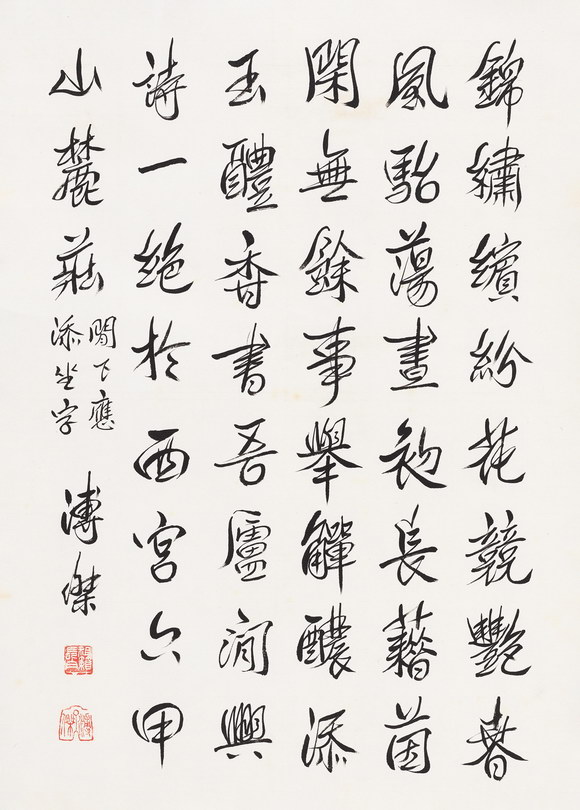 錦繡繽紛花競艷春
風駘蕩晝初長藉茵
閑無餘事舉觶醲添
玉醴香書吾廬澗興
詩一絶於西宮六甲
山麓莊
閒下應
添坐字
溥傑